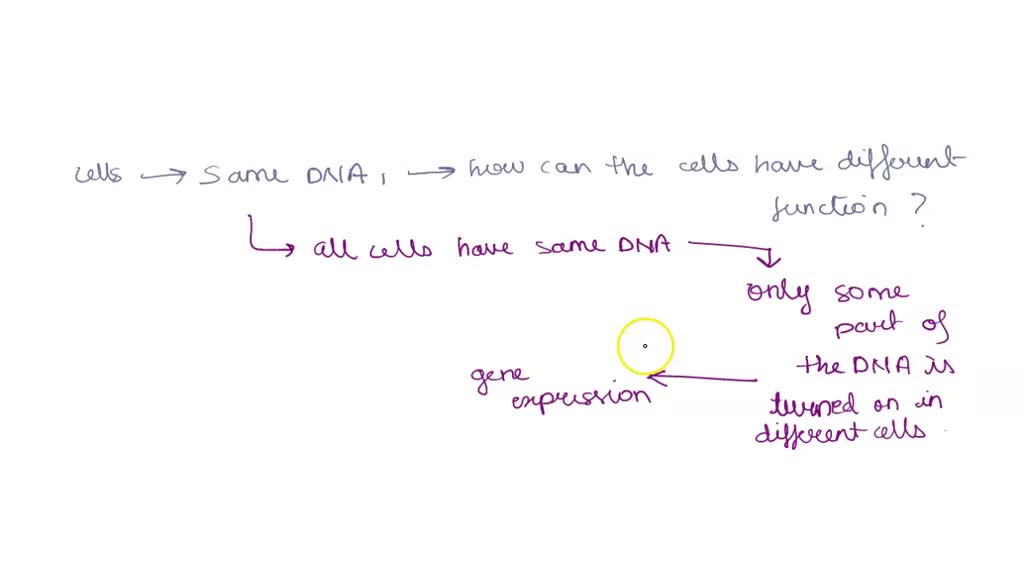 cells → Same DNA, → how can the cells have different
function ?
↳ all cells have same DNA
only some
part of
the DNA is
turned on in
different cells.
gene
expression